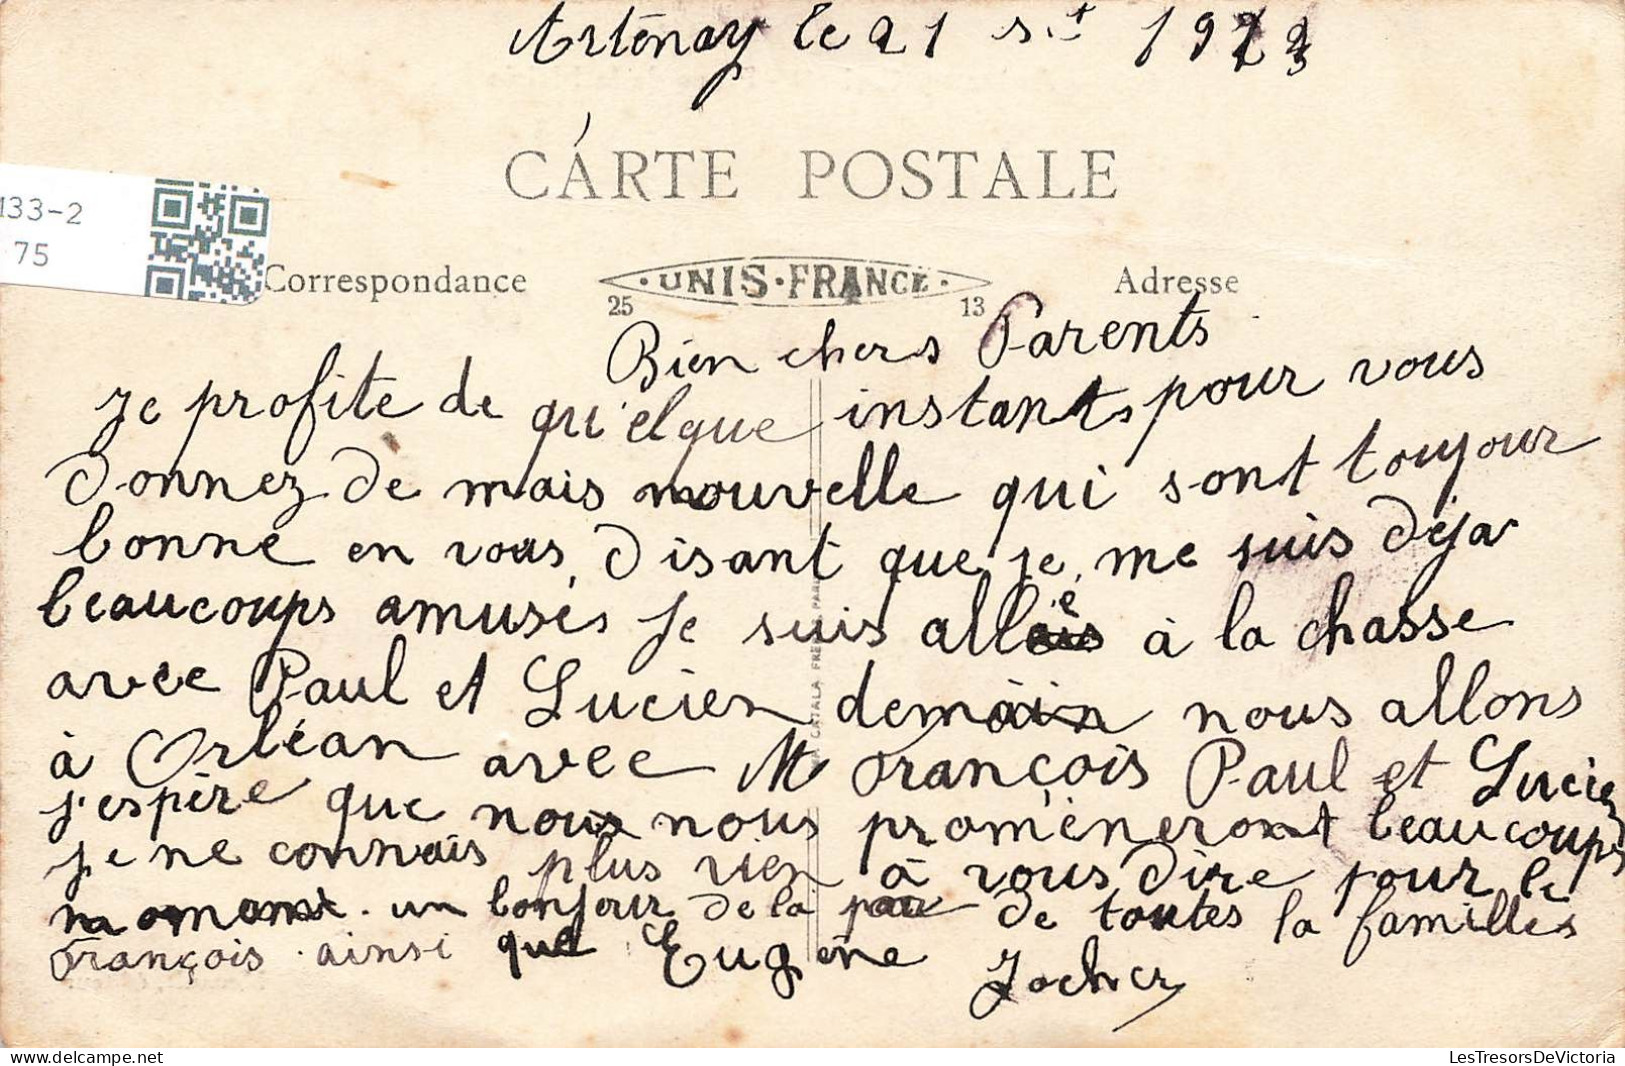 Artenay le 21 st 1923
CARTE POSTALE
133-2
75
Correspondance
·UNIS·FRANCE·
Adresse
25
13
Bien chers Parents
Je profite de qu'elque instants pour vous
donnez de mais nouvelle qui sont toujour
bonne en vous disant que je me suis déja
beaucoups amusés je suis allé à la chasse
avec Paul et Lucien demain nous allons
à Orléan avec M François Paul et Lucien
j'espère que nous nous promèneront beaucoups
je ne connais plus rien à vous dire pour le
momont. un bonjour de la par de toutes la familles
François ainsi que Eugène
CATALA FRERES PARIS